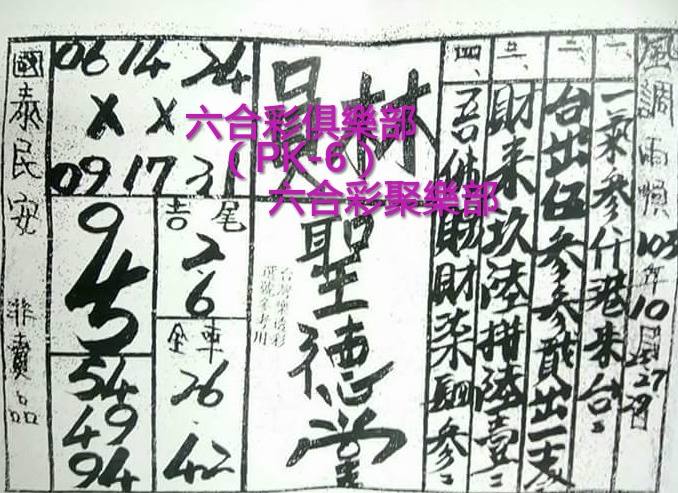 風調雨順 103年10月27日
一、一氣參仟港來台。
二、台出伍參參貳出一壹
三、財來玖陸拼陸壹。
四、吾財財柒參。
員林
聖德堂
台灣樂透彩
選號參考用
06 14 24
X X
09 17 31
吉尾
2.6
全車
26
42
9
4 5
54
49
94
國泰民安 非賣品
六合彩俱樂部
(PK-6)
六合彩聚樂部